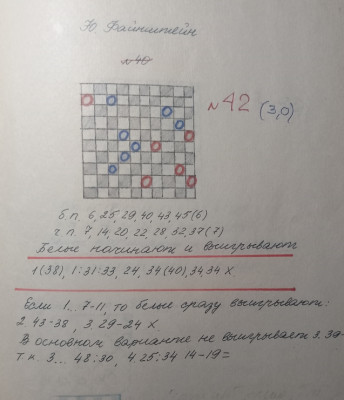 Ю. Файнштейн
№40
№42 (3,0)
б.п. 6, 25, 29, 40, 43, 45 (6)
ч.п. 7, 14, 20, 22, 28, 32, 37 (7)
Белые начинают и выигрывают
1 (38), 1: 31: 33, 24, 34 (40), 34, 34 X
Если 1... 7-11, то белые сразу выигрывают:
2 43-38, 3. 29-24 X
В основном варианте не выигрывает 3. 39-
т.к. 3... 48:30, 4. 25:34 14-19=